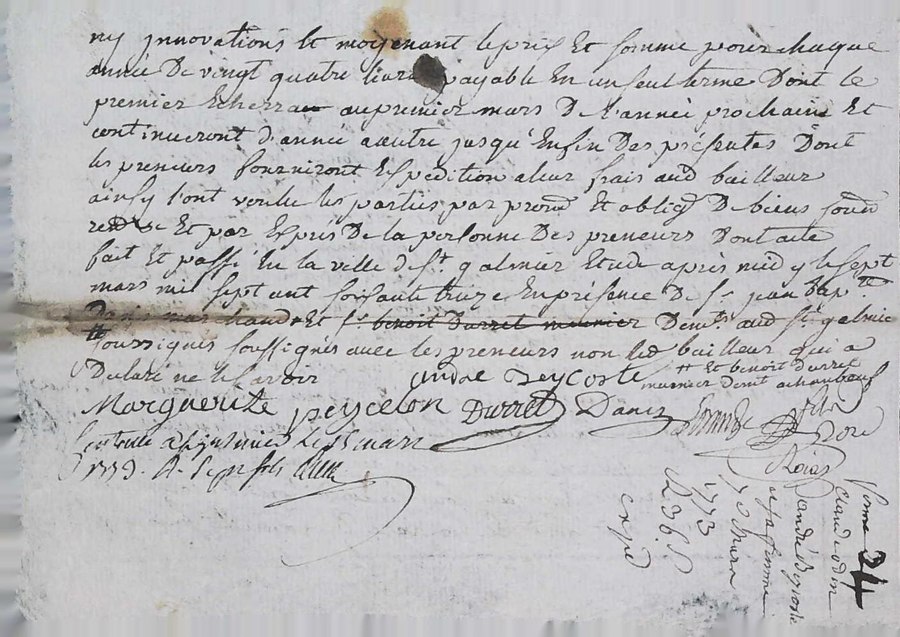 ny jnnovations Et moyenant le prix Et somme pour chaque
année De vingt quatre livres payable En un seul terme Dont le
premier Echerra au premier mars De l'année prochaine Et
continueront d'année aautre jusqu'Enfin Des présentes Dont
les preneurs fourniront Expedition a leur frais aud bailleur
ainsy l'ont voulu les parties par prome Et oblige De biens soum
Et par Expres De la personne Des preneurs Dont acte
fait Et passé En la ville de St galmier Etude après midy le sept
mars mil sept cent soixante treize En présence De sr jean bapte
Danis marchand Et sr benoit Durret meunier Demt aud St galmier
tous soussignés avec les preneurs non led bailleur qui a
Declaré ne le savoir
andré Peycoste
# Et benoit durret
meunier demt achambeuf
Marguerite peycelon Durret Danis
Controlé a St galmier le mars
1773. Rx
ferme 24
Claude odin
a andré Peycoste
et sa femme
7 mars
1773
Expé